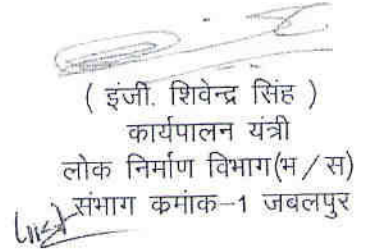 ( इंजी. शिवेन्द्र सिंह )
कार्यपालन यंत्री
लोक निर्माण विभाग(भ/स)
संभाग कमांक–1 जबलपुर